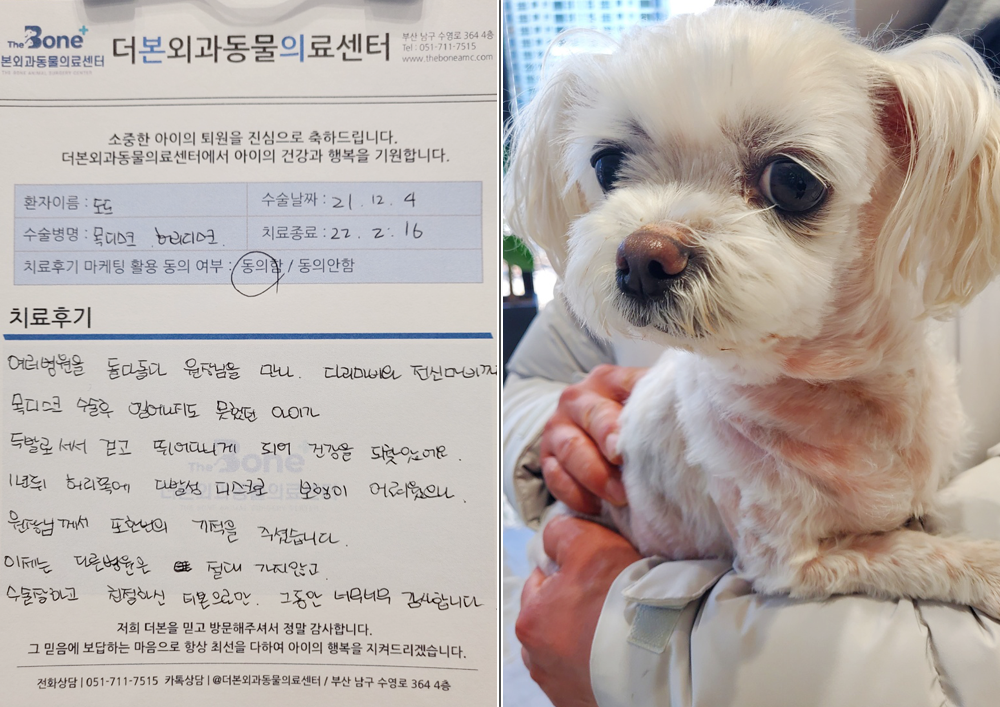 The Bone+
본외과동물의료센터
THE BONE ANIMAL SURGERY CENTER
더본외과동물의료센터
부산 남구 수영로 364 4층
Tel : 051-711-7515
www.theboneamc.com
소중한 아이의 퇴원을 진심으로 축하드립니다.
더본외과동물의료센터에서 아이의 건강과 행복을 기원합니다.
환자이름 : 도도
수술날짜 : 21. 12. 4
수술병명 : 목디스크 . 허리디스크.
치료종료 : 22. 2. 16
치료후기 마케팅 활용 동의 여부 : 동의함 / 동의안함
치료후기
여러병원을 돌다돌다 원장님을 만나. 다리마비와 전신마비까
목디스크 수술후 일어나지도 못했던 아이가
두발로 서서 걷고 뛰어다니게 되어 건강을 되찾았어요.
1년뒤 허리쪽에 다발성 디스크로 보행이 어려웠으나.
원장님께서 또한번의 기적을 주셨습니다.
이제는 다른병원은 절대 가지않고
수술잘하고 친절하신 더본으로만. 그동안 너무너무 감사합니다
The Bone
본외과동물의료센터
저희 더본을 믿고 방문해주셔서 정말 감사합니다.
그 믿음에 보답하는 마음으로 항상 최선을 다하여 아이의 행복을 지켜드리겠습니다.
전화상담 | 051-711-7515 카톡상담 | @더본외과동물의료센터 / 부산 남구 수영로 364 4층